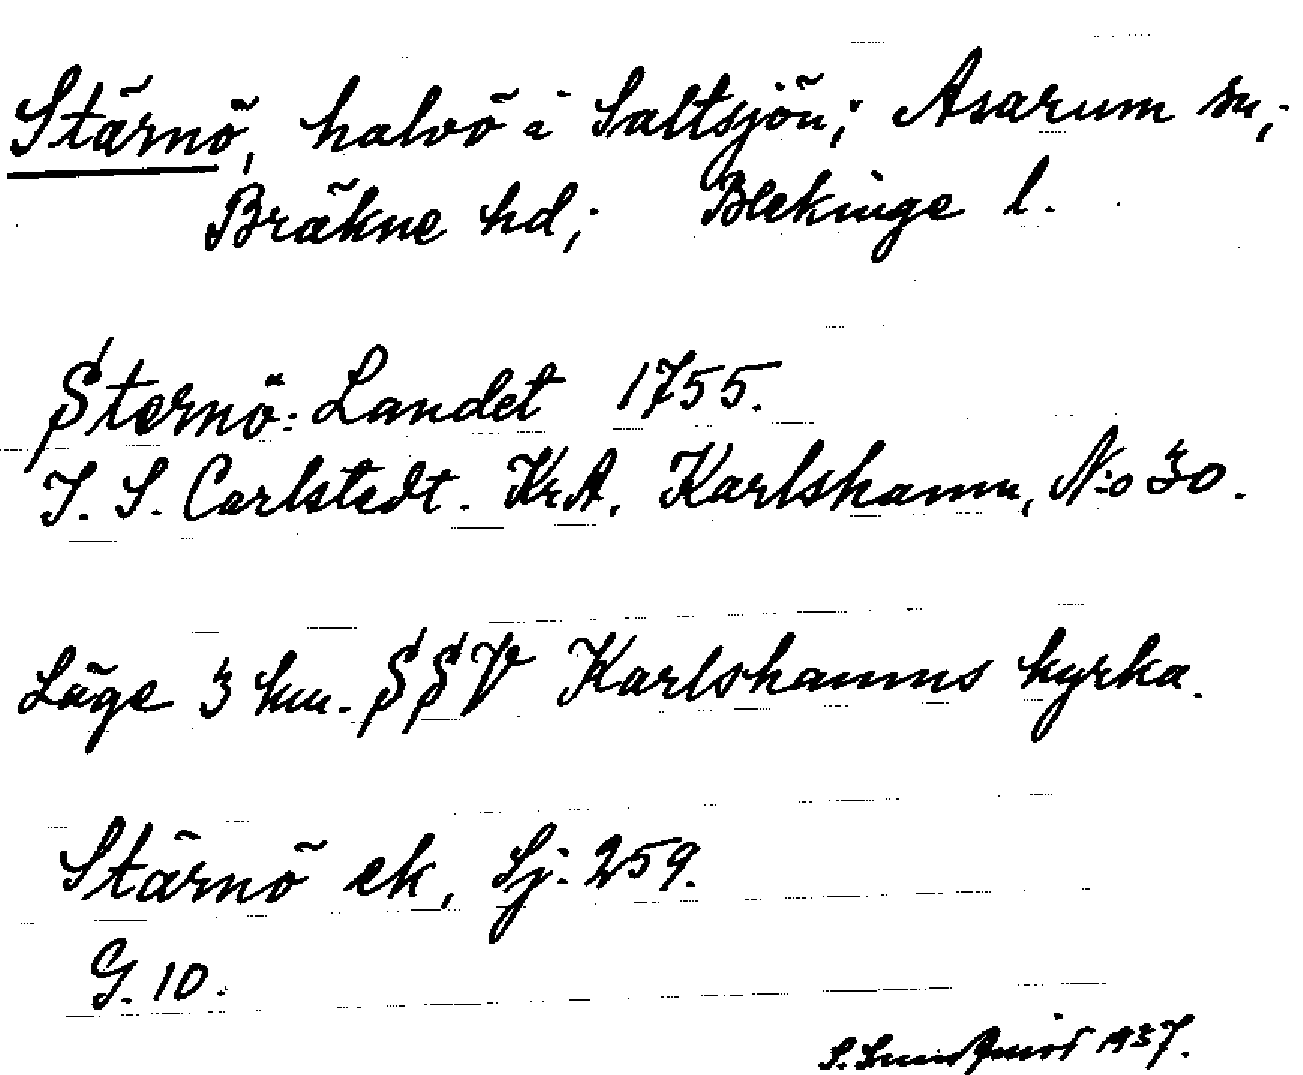 Stärnö, halvö i Saltsjön; Asarum sn;
Bräkne hd; Blekinge l.
Sternö-Landet 1755.
J. S. Carlstedt. KrA. Karlshamn, N:o 30.
Läge 3 km. SSV Karlshamns kyrka.
Stärnö ek, Sj. 259.
G. 10.
S. Lundqvist 1937.